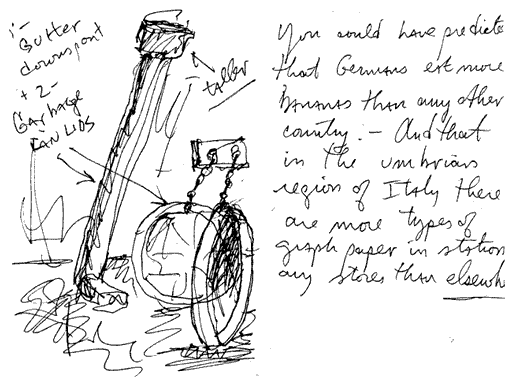 Gutter
downspout
+ 2 -
Garbage
CAN LIDS
taller
You could have predicte
that Germans eat more
bananas than any other
country :- And that
in the umbrian
region of Italy there
are more types of
graph paper in station
any stores than elsewh